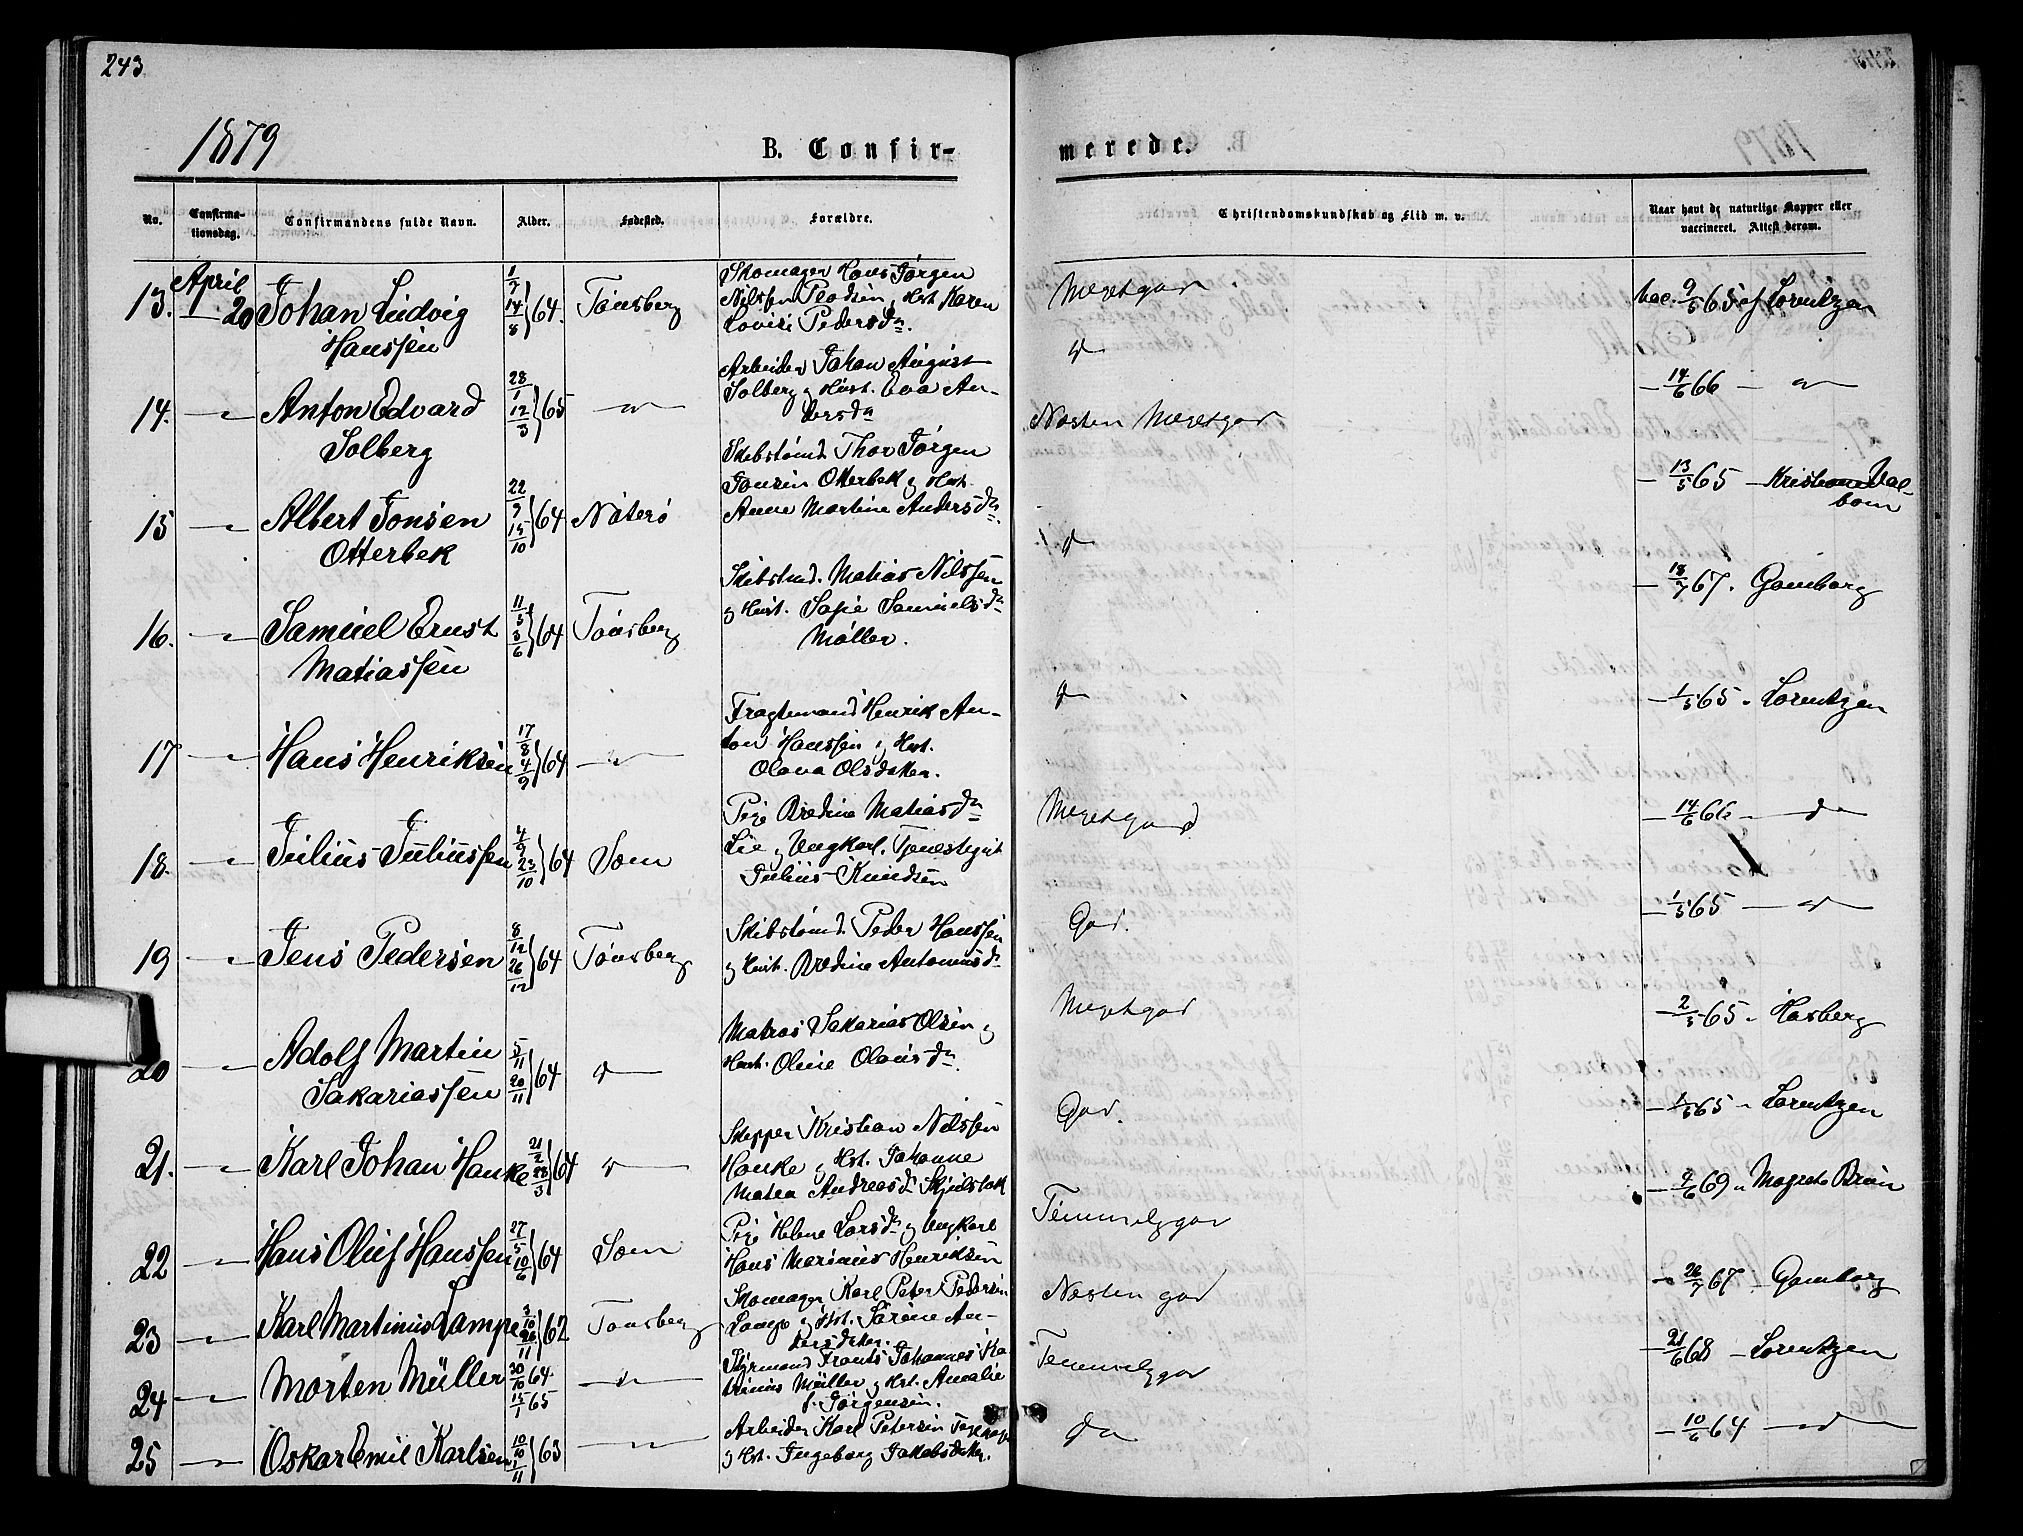 243
1879
B. Confirmerede.
No. Confirmationsdag. Confirmandens fulde Navn. Alder. Fødested. Forældre. Christendomskundskab og Flid m. v. Naar havt de naturlige Kopper eller vaccineret. Attest derom.
13. April 20 Johan Ludvig Hanssen 1/7 14/8 }64. Tönsberg Skomager Hans Jörgen Nilssen og Hst. Karen Lovise Pedersdn. Megetgod vac. 9/5 65 af Lorentzen
14. — Anton Edvard Solberg 28/1 12/3 }65 — Arbeider Johan August Solberg og Hust. Eva Andersdn d — 14/6 66 —
15 — Albert Jonsen Otterbek 22/9 15/10 }64 Nöterö Skibstømd Thor Jörgen Jonsen Otterbek og Hst. Anne Martine Andersdn. Næsten Megetgod — 13/5 65 — Kristiane Dalbom
16. — Samuel Ernst Matiassen 11/5 5/6 }64 Tönsberg Skibstmd. Matias Nilssen og Hust. Sofie Samuelsdn Møller. d — 18/7 67. Gamborg
17 — Hans Henriksen 17/8 4/9 }64 — Fragtemand Henrik Anton Hanssen og Hst. Olava Olsdatter. d — 1/5 65 " Lorentzen
18. — Julius Juliussen 4/9 23/10 }64 Sem Pige Bredine Matiasdn Lie og Ungkarl. Tjenestegut Julius Knudsen Megetgod — 14/6 66 — d
19 — Jens Pedersen 8/12 26/12 }64 Tönsberg Skibstømd. Peder Hanssen og Hust. Bredine Antoniusdn God. — 1/5 65 —
20 — Adolf Martin Sakariassen 5/11 20/11 }64 d Matros Sakarias Olsen og Hust. Oline Olausdn. Megetgod — 2/5 65 " Hasberg
21. — Karl Johan Hanke 21/2 28/3 }64 d Skipper Kristian Nilssen Hanke og Hst. Johanne Matea Andreasdn God. — 1/5 65 " Lorentzen
22 — Hans Oluf Hanssen 27/5 10/6 }64 Sem Pige Helene Larsdn og Ungkarl Hans Marinius Henriksen Temmelig god — 9/6 69 " Magrete Bruun
23 — Karl Martinius Lampe 3/10 26/11 }62 Tönsberg Skomager Karl Peter Pedersen Lampe og Hst. Sörine Andersdatter. Næsten god — 26/7 67. Gamborg
24 — Morten Müller 30/10 64 15/1 65 — Styrmand Frants Johannes Müller og Hst. Amalie f. Jörgensen. Temmelig god — 21/6 68 — Lorentzen
25 — Oskar Emil Karlsen 10/10 1/11 }63 — Arbeider Karl Petersen og Hst. Ingeborg Jakobsdatter. do — 10/6 64 — d